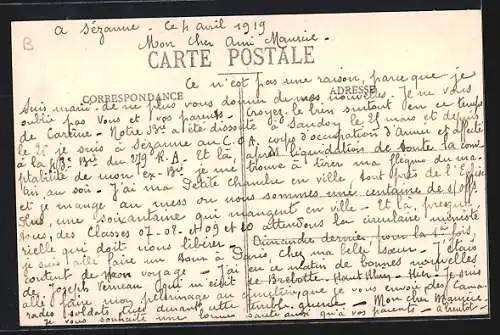 B
a Sézanne - Ce 4 avril 1919
Mon Cher Ami Maurice -
CARTE POSTALE
Ce n'est pas une raison, parce que je
CORRESPONDANCE
ADRESSE
suis marié - de ne plus vous donner de mes nouvelles. Je ne vous
oublie pas vous et vos parents. Croyez-le bien surtout en ce temps
de - Notre a été dissoute à le 21 mars et depuis
le 26 je suis à Sézanne au C.O.A. corps d'occupation d'Armée et affecté
à la Bie du 279 R.A. Et là, après liquidation de toute la comp-
tabilité de mon ex-Bie je me trouve à tirer ma du ma-
tin au soir - J'ai ma Petite chambre en ville tout près de l'Eglise
et je mange au mess où nous sommes une centaine de s/off.
Plus une soixantaine qui mangent en ville - Et là, presque
tous, des Classes 07-08- et 09 et 10 attendons la circulaire ministé-
rielle qui doit nous libérer - Dimanche dernier pour la 1e fois,
je suis allé faire un bon à Paris, chez ma belle sœur - J'étais
content de mon voyage - J'ai eu ce matin de bonnes nouvelles
de Joseph Verneau qui m'écrit de - Hier - Je suis
allé faire mon pelerinage au cimetière, que je vous envoi des Cama-
rades soldats tués durant cette terrible guerre - Mon cher Maurice -
je vous souhaite une bonne santé ainsi qu'à vos parents - a bientôt -